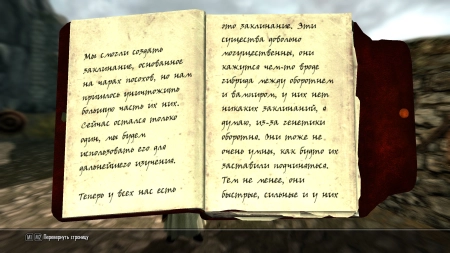 Мы смогли создать
заклинание, основанное
на чарах посохов, но нам
пришлось уничтожить
большую часть их них.
Сейчас остался только
один, мы будем
использовать его для
дальнейшего изучения.
Теперь у всех нас есть
это заклинание. Эти
существа довольно
могущественны, они
кажутся чем-то вроде
гибрида между оборотнем
и вампиром, у них нет
никаких заклинаний, я
думаю, из-за генетики
оборотня. Они тоже не
очень умны, как будто их
заставили подчиняться.
Тем не менее, они
быстрые, сильные и у них
Перевернуть страницу